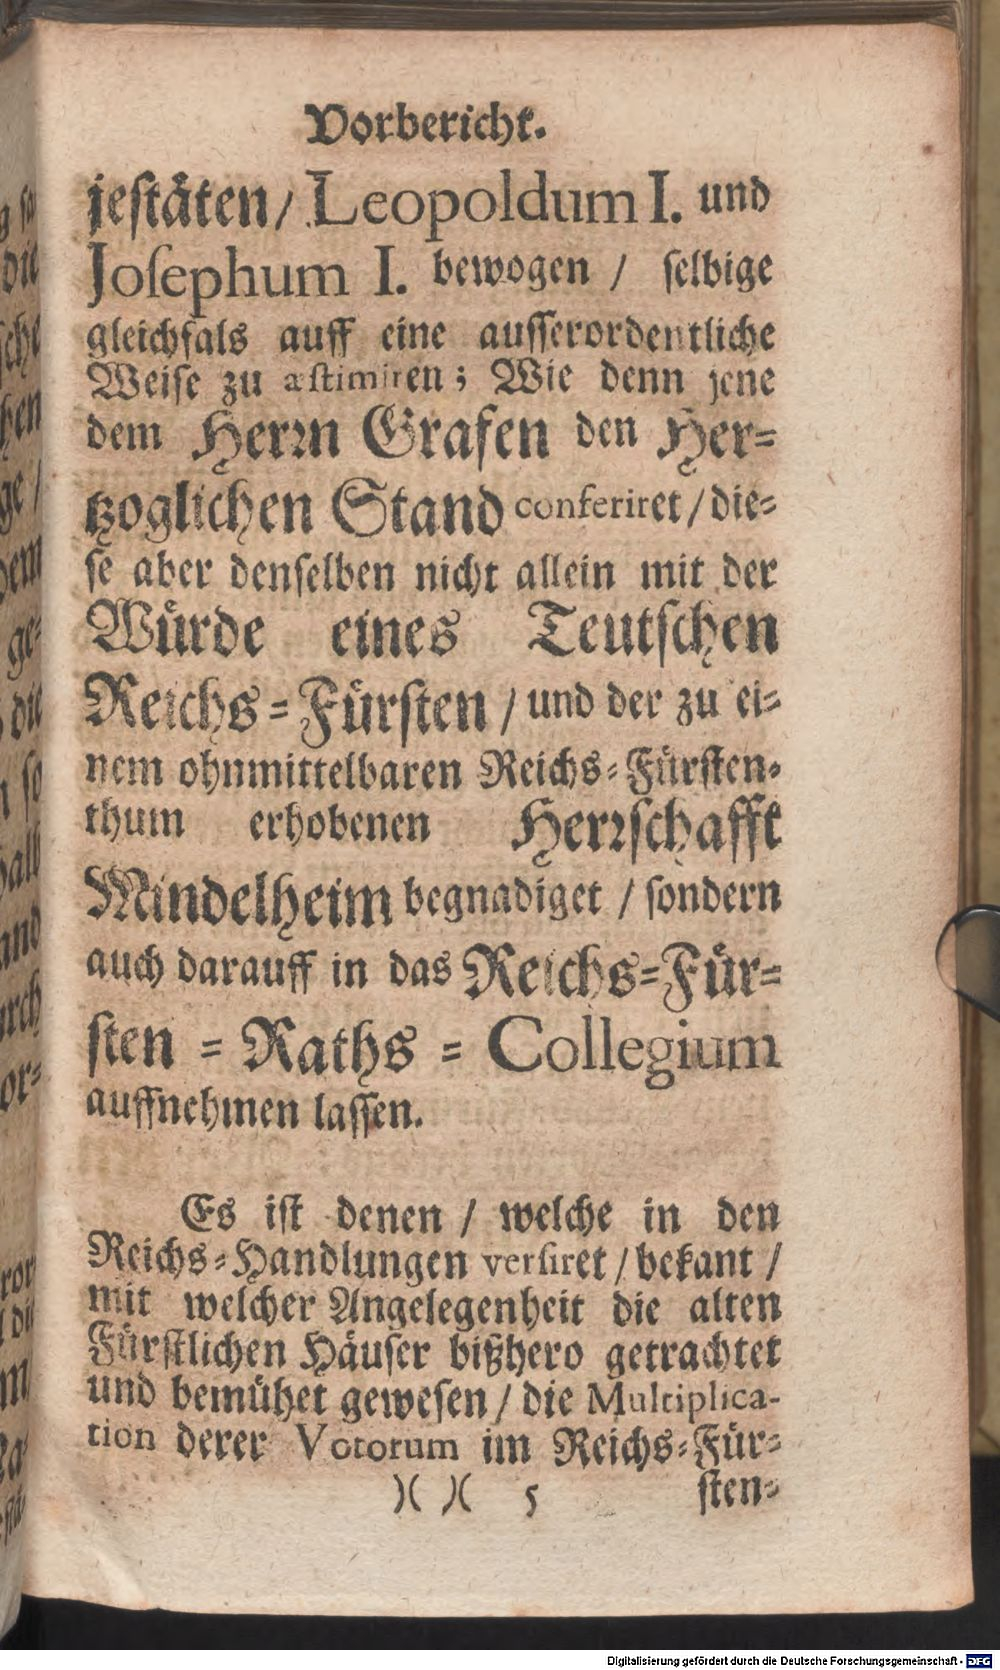 Vorbericht.
jestäten / Leopoldum I. und
Josephum I. bewogen / selbige
gleichfals auff eine ausserordentliche
Weise zu æstimiren; Wie denn jene
dem Herrn Grafen den Her-
tzoglichen Stand conferiret / die-
se aber denselben nicht allein mit der
Würde eines Teutschen
Reichs-Fürsten / und der zu ei-
nem ohnmittelbaren Reichs-Fürsten-
thum erhobenen Herrschafft
Mindelheim begnadiget / sondern
auch darauff in das Reichs-Für-
sten-Raths-Collegium
auffnehmen lassen.
Es ist denen / welche in den
Reichs-Handlungen versiret / bekant /
mit welcher Angelegenheit die alten
Fürstlichen Häuser bißhero getrachtet
und bemühet gewesen / die Multiplica-
tion derer Votorum im Reichs-Für-
)( )( 5 sten-
Digitalisierung gefördert durch die Deutsche Forschungsgemeinschaft - DFG